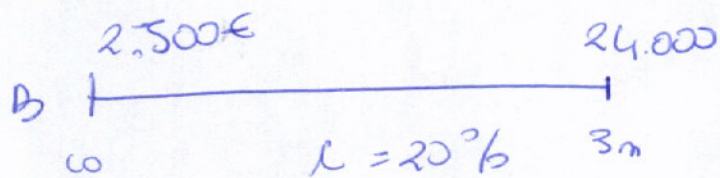 2.500€ 24.000
B
co i = 20% 3m